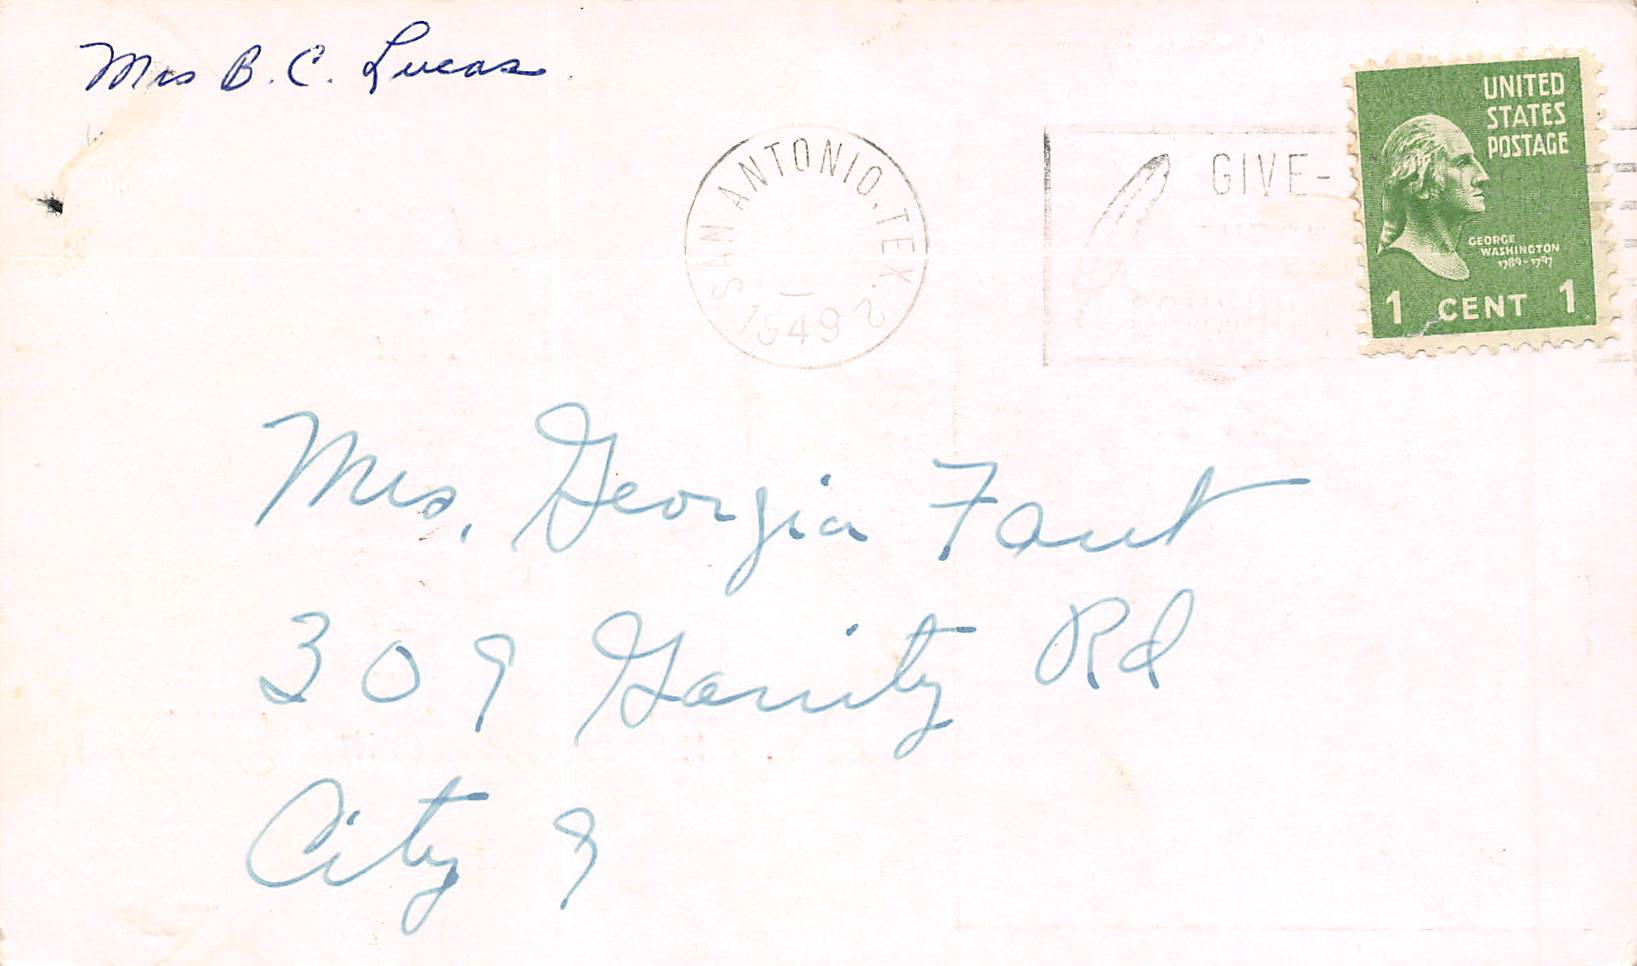 Mrs B. C. Lucas
SAN ANTONIO, TEX. 2
1949
GIVE-
UNITED
STATES
POSTAGE
GEORGE
WASHINGTON
1789-1797
1 CENT 1
Mrs. Georgia Faut
309 Garrity Rd
City 9